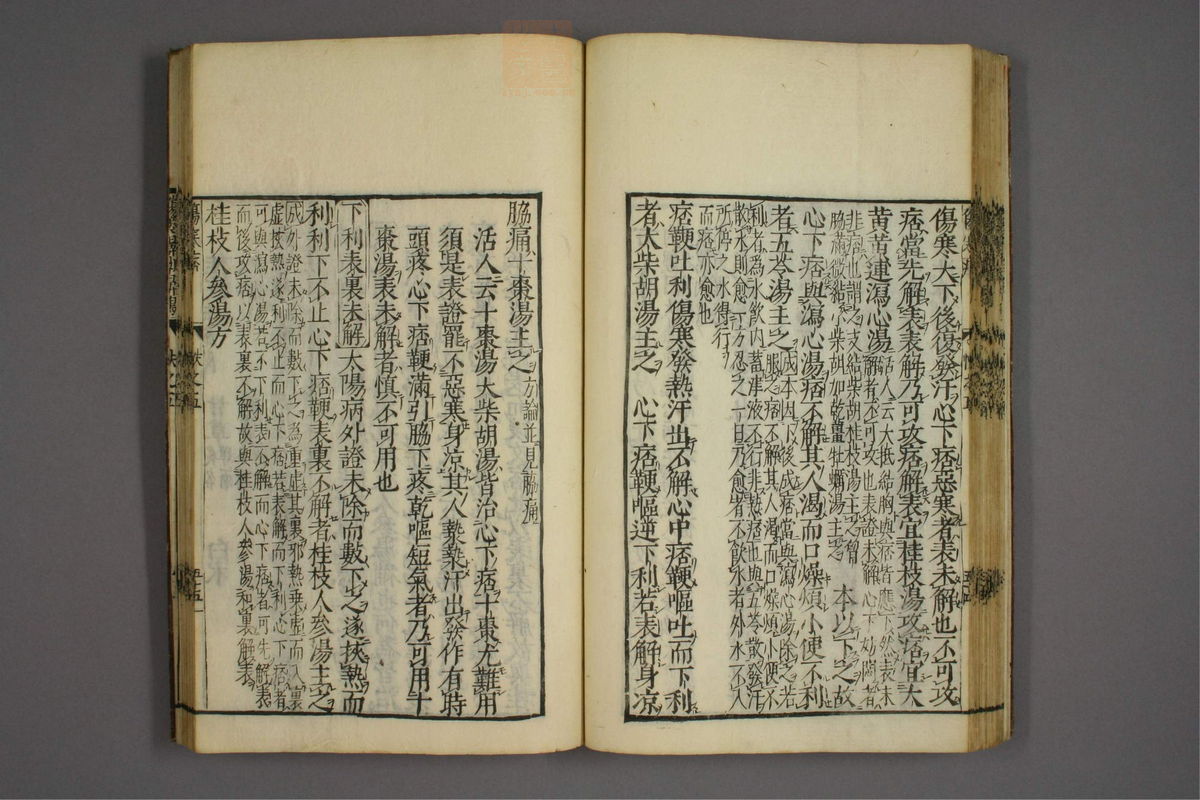 傷寒大下後復發汗心下痞惡寒者表未解也不可攻
痞當先解表表解乃可攻痞解表宜桂枝湯攻痞宜大
黃黃連瀉心湯
活人云大抵結胸與痞皆應下然表未
解者不可攻也表證未解心下妨悶者
非痞也謂之支結柴胡桂枝湯主之
胸脇滿微結小柴胡加乾薑牡蠣湯主之
本以下之故
心下痞與瀉心湯痞不解其人渴而口燥煩小便不利
者五苓湯主之
成本因下後成痞當與瀉心湯除之若
服之痞不解其人渴而口燥煩小便不
利者為水飲內蓄津液不行非熱痞也與五苓散發汗
散水則愈一方忍之一日乃愈者不飲水者外水不入
所停之水得行
而痞亦愈也
痞鞕吐利傷寒發熱汗出不解心中痞鞕嘔吐而下利
者大柴胡湯主之
心下痞鞕嘔逆下利若表解身凉
脇痛十棗湯主之
方論並見脇痛
活人云十棗湯大柴胡湯皆治心下痞十棗尤難用
須是表證罷不惡寒身凉其人漐漐汗出發作有時
頭疼心下痞鞕滿引脇下疼乾嘔短氣者乃可用十
棗湯表未解者慎不可用也
下利表裏未解
太陽病外證未除而數下之遂挾熱而
利利下不止心下痞鞕表裏不解者桂枝人參湯主之
成外證未除而數下之為重虛其裏邪熱乘虛而入裏
虛挾熱遂利不止而心下痞若表解而下利心下痞者
可與瀉心湯若不下利表不解而心下痞者可先解表
而後攻痞以表裏不解故與桂枝人參湯和裏解表
桂枝人參湯方